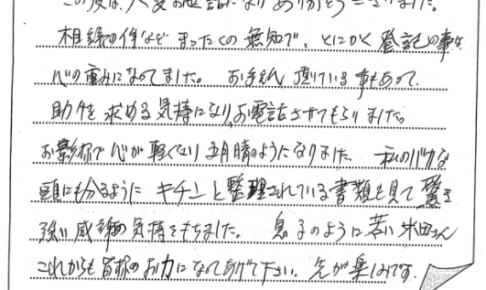 この度は、大変お世話になりありがとうございました。
相続の件など まったくの無知で、とにかく登記の事は
心の重みになってました。 お手伝い頂いている事もあって、
助けを求める気持になりお電話させてもらいました。
お影様で心が軽くなり五月晴のようになりました。 私のバカな
頭にも分るように キチンと整理されている書類を見て 驚き
強い感謝の気持をもちました。 息子のように若い米田さん
これからも皆様のお力になってあげて下さい。先が楽しみです。